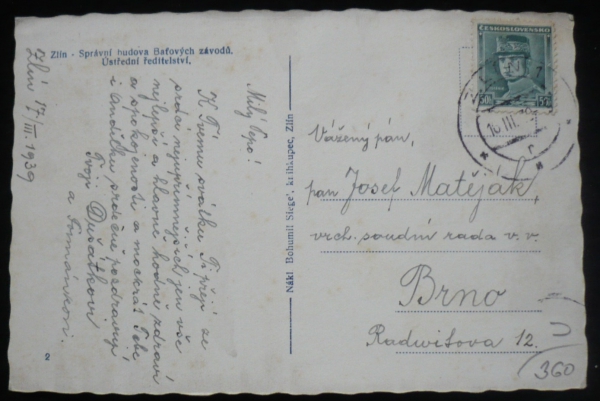 Zlín - Správní budova Baťových závodů,
Ústřední ředitelství.
Zlín 17/III 1939
Milý Pepo!
K Tvému svátku Ti přeji ze
srdce nejupřímněji jen vše
nejlepší a hlavně hodně zdraví
a spokojenosti a mockrát Tebe
i Andulku srdečně pozdravují
Tvoji Dušátkovi
a Tománkovi.
2
Nákl Bohumil Siegel, knihkupec, Zlín
ČESKOSLOVENSKO
50h
Vážený pán,
pan Josef Matěják,
vrch. soudní rada v. v.
Brno
Radwitova 12.
360